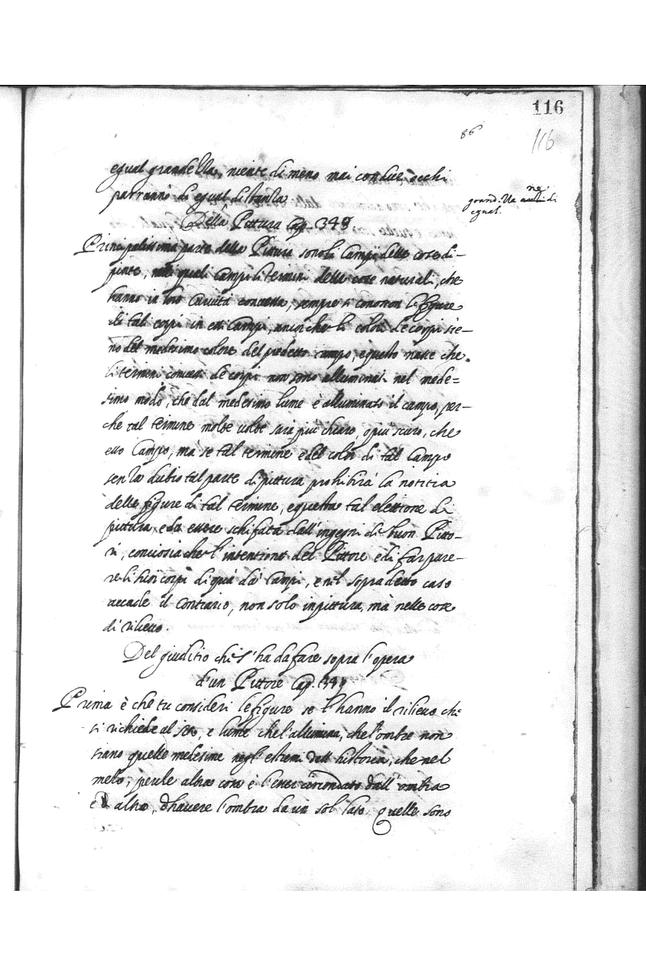 116
86
116
egual grandezza, niente di meno mai con due occhi
parranno di egual distantia
grandezza ne
egual.
Della Pittura Cap. 348
Principalissima parte della Pittura sono li Campi delle cose di-
pinte, nelli quali campi li termini delle cose naturali, che
hanno in loro curvità concava, sempre si conoscon le figure
di tal corpi in essi Campi, anchor che li colori de corpi sie-
no del medesimo colore del predetto campo, e questo nasce che
li termini de corpi non sono alluminati nel mede-
simo modo, che dal medesimo lume è alluminato il campo, per-
che tal termine molte volte sarà più chiaro, o più scuro, che
esso Campo, ma se tal termine è del color di tal Campo
senza dubio tal parte di pittura prohibirà la notitia
delle figure di tal termine, e questa tal elettione di
pittura è da essere schifata dall'ingegni di buon Pitto-
ri, conciosia che l'intentione del Pittore è di far pare-
re li suoi corpi di qua da Campi, e nel sopradetto caso
accade il contrario, non solo in pittura, ma nelle cose
di rilievo.
Del giuditio che s'ha da fare sopra l'opera
d'un Pittore Cap.
Prima è che tu consideri le figure se l'hanno il rilievo che
si richiede al sito, e lume che l'allumina, che l'ombre non
siano quelle medesime negl'estremi dell'historia, che nel
mezo, perche altra cosa è l'esser circondato dall'ombra
è altro, d'havere l'ombra da un sol lato. Quelle sono